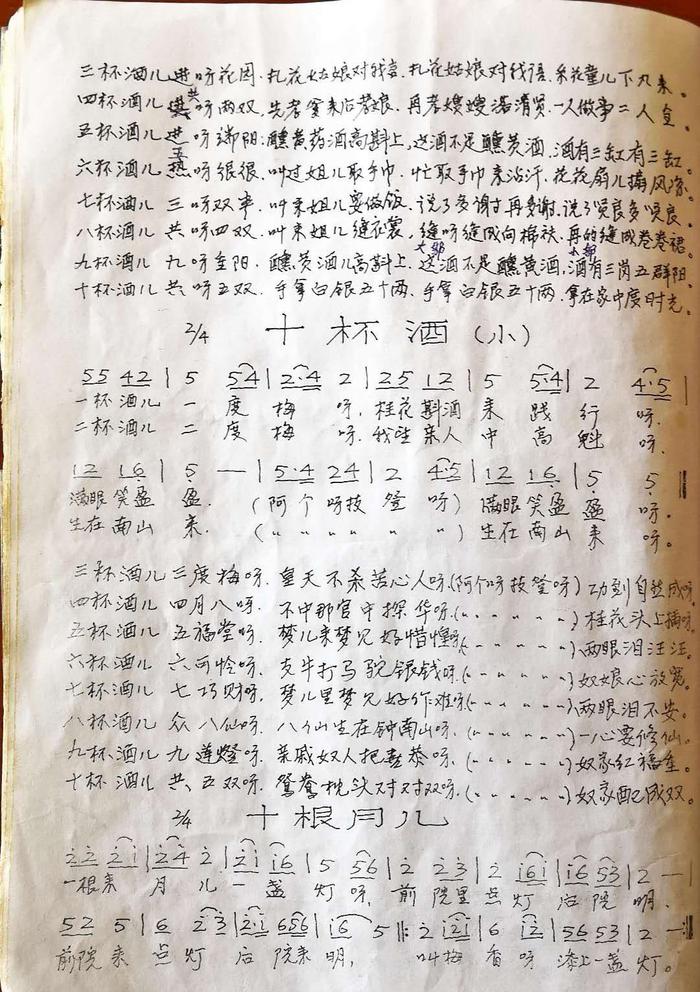 三杯酒儿进呀花园.扎花姑娘对我言.扎花姑娘对我语.采花童儿下凡来。
四杯酒儿共呀两双.先孝爹来后孝娘.再孝嫂嫂活清贤.一人做事二人宜.
五杯酒儿进呀端阳.醺黄药酒高斟上.这酒不足醺黄酒.酒有三缸有三缸。
六杯酒儿热呀很很.叫过姐儿取手巾.忙取手巾来沾汗.花花扇儿搧风凉。
七杯酒儿三呀双事.叫来姐儿要做饭.说了多谢再多谢.说了贤良多贤良.
八杯酒儿共呀四双.叫来姐儿缝衣裳,缝呀缝成向棉袄.再的缝成卷卷裙.
九杯酒儿九呀重阳.醺黄酒儿高斟上.这酒不足醺黄酒.酒有三岗五群阳.
十杯酒儿共呀五双.手拿白银五十两.手拿白银五十两.拿在家中度时光。
2/4 十杯酒(小)
55 42 | 5 54 | 2·4 2 | 25 12 | 5 5·4 | 2 4·5 |
一杯酒儿一度梅呀.桂花斟酒来践行呀.
二杯酒儿二度梅呀.我生亲人中高魁呀.
12 16 | 5 — | 5·4 24 | 2 4·5 | 12 16 | 5 5 ‖
满眼笑盈盈.(阿个呀技登呀)满眼笑盈盈呀.
生在南山来.(〃 〃 〃 〃 〃)生在南山来呀。
三杯酒儿三度梅呀.皇天不杀苦心人呀.(阿个呀技登呀)功到自然成呀.
四杯酒儿四月八呀.不中那官中探华呀.(- - - - -)桂花头上插呀.
五杯酒儿五福堂呀.梦儿来梦见好惜惶呀(- - - - -)两眼泪汪汪。
六杯酒儿六可怜呀.克牛打马驼银钱呀.(- - - - -)奴娘心放宽。
七杯酒儿七巧财呀.梦儿里梦见好作难呀.(- - - - -)两眼泪不安。
八杯酒儿众八仙呀.八仙生在钟南山呀.(- - - - -)一心要修仙。
九杯酒儿九莲灯呀.亲戚奴人把喜恭呀.(- - - - -)奴家红福生。
十杯酒儿共五双呀.鸳鸯枕头对对双呀.(- - - - -)奴家配成双。
2/4 十根月儿
22 21 | 24 2 | 21 16 | 5 56 | 2 23 | 2 161 | 16 53 | 2 — |
一根来月儿一盏灯呀,前院里点灯后院明.
52 5 | 6 23 | 21 656 | 16 5 ‖: 2 121 | 6 12 | 56 53 | 2 — :‖
前院来点灯后院来明,叫梅香呀添上一盏灯。